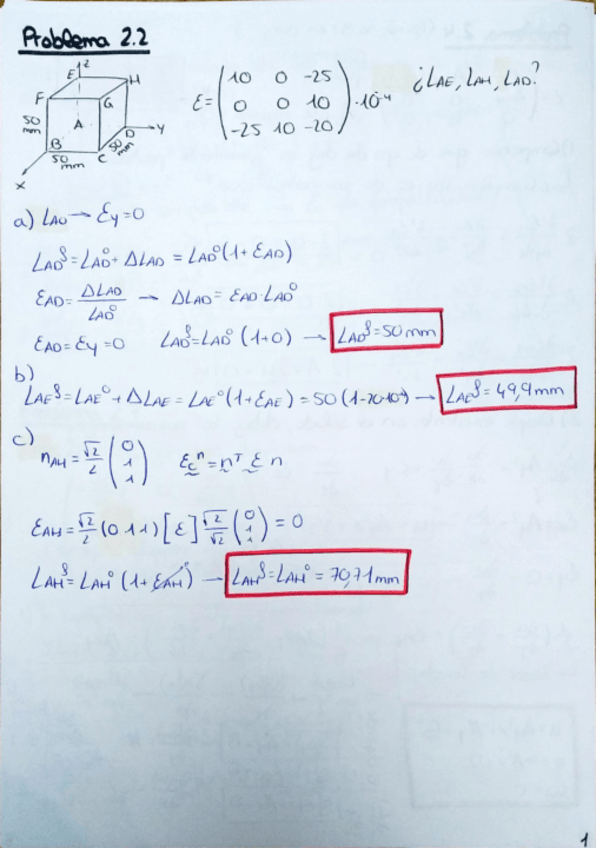 Problema 2.2
z
E H
F G
50 mm A D y
B C
50 mm 50 mm
x
ε = ( 10 0 -25 ; 0 0 10 ; -25 10 -20 ) · 10⁻⁴ ¿L_AE, L_AH, L_AD?
a) L_AD → ε_y = 0
L_AD^f = L_AD^0 + ΔL_AD = L_AD^0 (1 + ε_AD)
ε_AD = ΔL_AD / L_AD^0 → ΔL_AD = ε_AD · L_AD^0
ε_AD = ε_y = 0 L_AD^f = L_AD^0 (1+0) → L_AD^f = 50 mm
b)
L_AE^f = L_AE^0 + ΔL_AE = L_AE^0 (1 + ε_AE) = 50 (1 - 20·10⁻⁴) → L_AE^f = 49,9 mm
c)
n_AH = √2/2 (0 1 1) ε_c^n = n^T ε n
ε_AH = √2/2 (0 1 1) [ε] √2/√2 (0 1 1) = 0
L_AH^f = L_AH^0 (1 + ε_AH^0) → L_AH^f = L_AH^0 = 70,71 mm
1